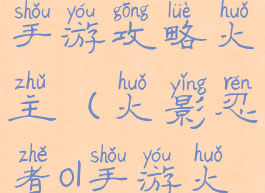 shǒu yóu gōng lüè huǒ
手游攻略火
zhǔ huǒ yǐng rěn
主（火影忍
zhě shǒu yóu huǒ
者01手游火